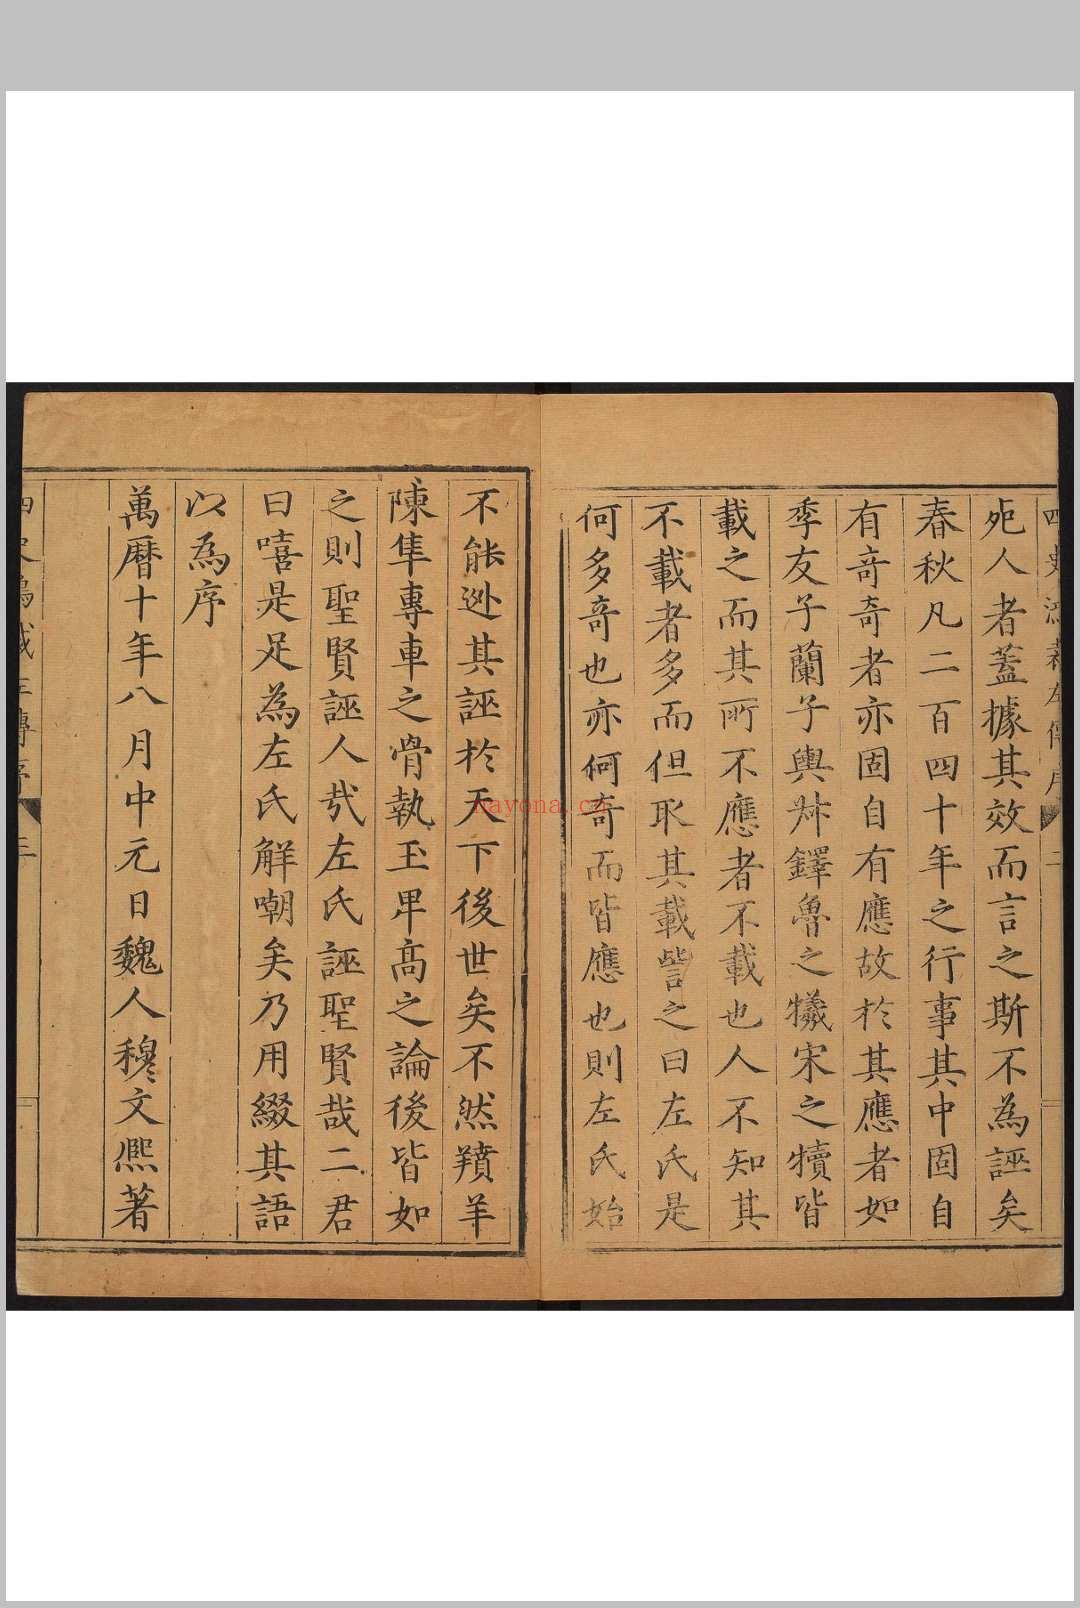 四史鴻裁左傳序 二
死人者蓋據其效而言之斯不為誣矣
春秋凡二百四十年之行事其中固自
有奇奇者亦固自有應故於其應者如
季友子蘭子輿叔鐸魯之犧宋之犢皆
載之而其所不應者不載也人不知其
不載者多而但取其載訾之曰左氏是
何多奇也亦何奇而皆應也則左氏始
不能逊其誣於天下後世矣不然羵羊
陳隼專車之骨執玉卑高之論後皆如
之則聖賢誣人㢤左氏誣聖賢哉二君
曰嘻是足為左氏解嘲矣乃用綴其語
以為序
萬曆十年八月中元日魏人穆文熙著
nayona.cn